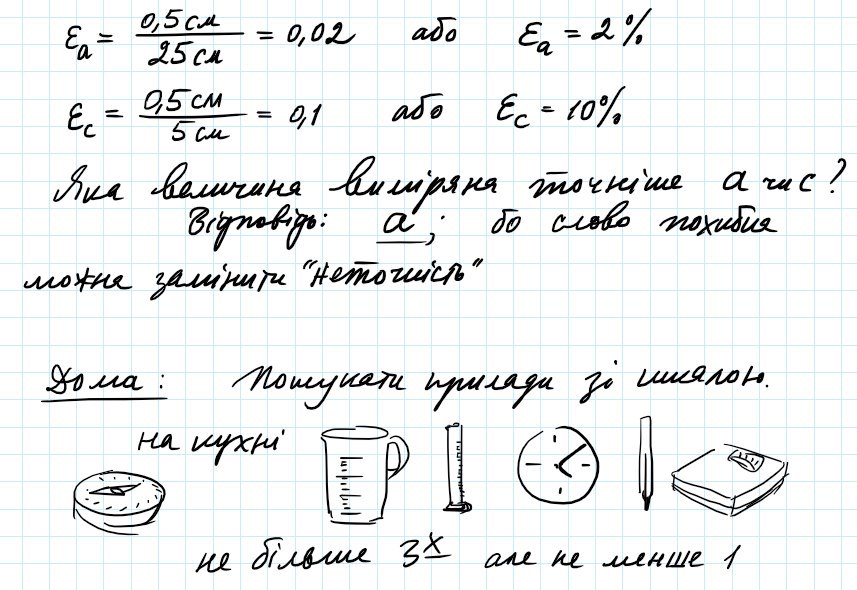 εa = 0,5 см / 25 см = 0,02 або εa = 2%
εc = 0,5 см / 5 см = 0,1 або εc = 10%
Яка величина виміряна точніше a чи c?
Відповідь: a, бо слово похибка
можна замінити "неточність"
Дома: Пошукати прилади зі шкалою.
на кухні
не більше 3х але не менше 1